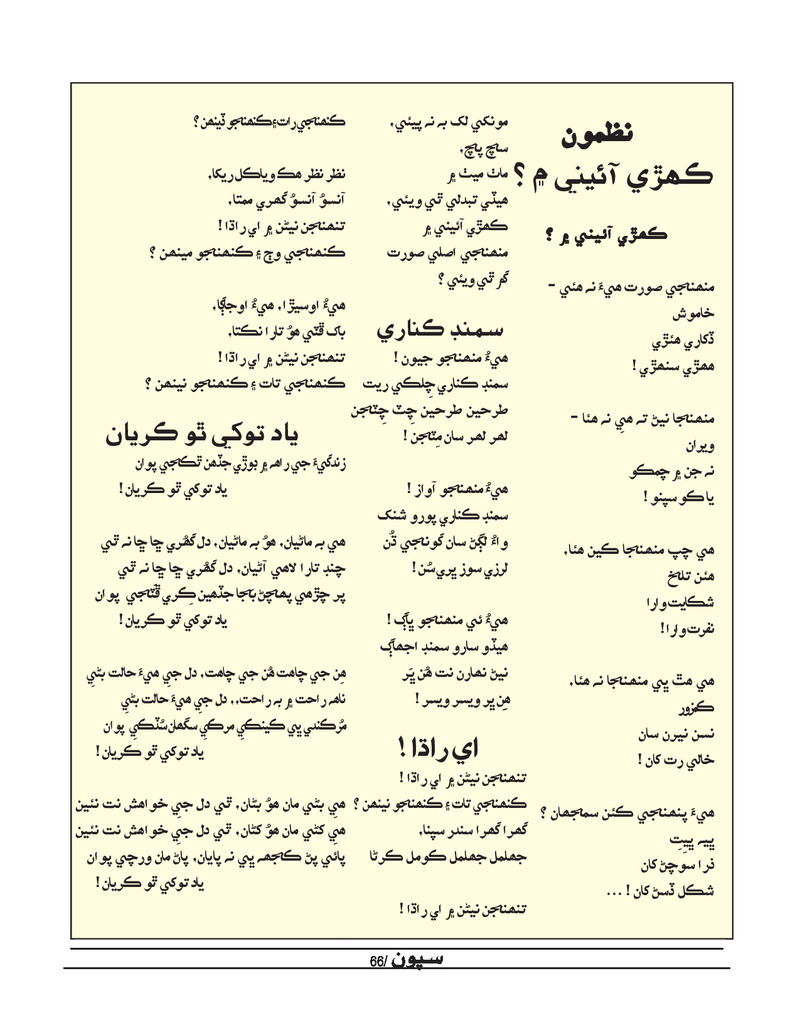 نظمون
ڪهڙي آئيني ۾ ؟
ڪهڙي آئيني ۾ ؟
منهنجي صورت هيءَ نہ هئي -
خاموش
ڏکاري هئڙي
ههڙي سنهڙي !
منهنجا نيڻ تہ هيِ نہ هئا -
ويران
نہ جن ۾ چمڪو
يا ڪو سپنو !
هي چپ منهنجا ڪين هئا،
هئن تلخ
شڪايت وارا
نفرت وارا!
هي هٿ ڀي منهنجا نہ هئا،
ڪمزور
نسن نيرن سان
خالي رت کان !
هيءَ پنهنجي ڪئن سمجهان ؟
ڀيہ ڀيِت
ذرا سوچڻ کان
شڪل ڏسڻ کان ! ...
مونکي لک بہ نہ پيئي،
سچ پاچ،
مات ميٺ ۾
هيئي تبدلي ٿي ويئي،
ڪهڙي آئيني ۾
منهنجي اصلي صورت
گم ٿي ويئي ؟
سمنڊ ڪناري
هيءُ منهنجو جيون !
سمنڊ ڪناري چلڪي ريت
طرحين طرحين چِٽ چِٽجن
لهر لهر سان مِٽجن !
هيءُ منهنجو آواز !
سمنڊ ڪناري پورو شنک
واءُ لڳڻ سان گونججي ڌُن
لرزي سوز ڀري سُن !
هيءُ ئي منهنجو ڀاڳ !
هيڏو سارو سمنڊ اجهاڳ
نيڻ نهارن نت هُن ڀَر
هِن ڀر ويسر ويسر !
اي راڌا !
تنهنجن نيڻن ۾ اي راڌا !
ڪنهنجي تات ۽ ڪنهنجو نينهن ؟
گهرا گهرا سندر سپنا،
جهلمل جهلمل ڪومل ڪرڻا
تنهنجن نيڻن ۾ اي راڌا !
ڪنهنجي رات ۽ ڪنهنجو ڏينهن ؟
نظر نظر هڪ وياڪل ريکا،
آنسوُ آنسوُ گهري ممتا،
تنهنجن نيڻن ۾ اي راڌا !
ڪنهنجي وڄ ۽ ڪنهنجو مينهن ؟
هيءُ اوسيڙا، هيءُ اوجاڳا،
باک ڦٽي هوُ تارا نڪتا،
تنهنجن نيڻن ۾ اي راڌا !
ڪنهنجي تات ۽ ڪنهنجو نينهن ؟
ياد توکي ٿو ڪريان
زندگيءَ جي راهہ ۾ ٻوڙي جڏهن ٿڪجي پوان
ياد توکي ٿو ڪريان !
هي بہ ماڻيان، هوُ بہ ماڻيان، دل گهُري ڇا ڇا نہ ٿي
چنڊ تارا لاهي آڻيان، دل گهُري ڇا ڇا نہ ٿي
پر چڙهي پهچڻ بجا جڏهين ڪِري ڦٽجي پوان
ياد توکي ٿو ڪريان !
هِن جي چاهت هُن جي چاهت، دل جي هيءَ حالت بڻي
ناهہ راحت ۾ بہ راحت،، دل جي هيءَ حالت بڻي
مُرڪندي ڀي ڪينڪي مرڪي سگهان سُٽڪي پوان
ياد توکي ٿو ڪريان !
هي بڻي مان هوُ بڻان، ٿي دل جي خواهش نت نئين
هي کڻي مان هوُ کڻان، ٿي دل جي خواهش نت نئين
پائي پڻ ڪجهہ ڀي نہ پايان، پاڻ مان ورچي پوان
ياد توکي ٿو ڪريان !
سپون /66